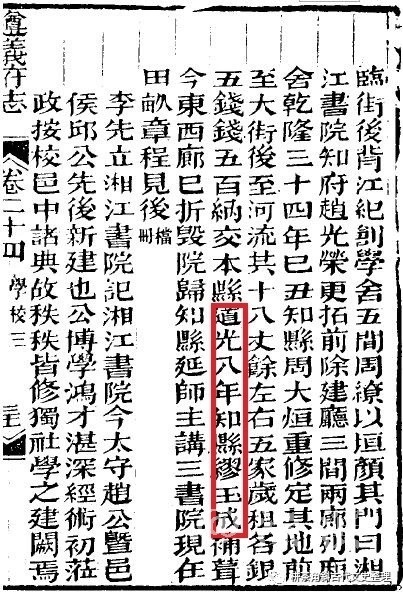 臨街後背江紀剏學舍五間周繚以垣顏其門曰湘
江書院知府趙光榮更拓前除建廳三間兩廊列廂
舍乾隆三十四年巳丑知縣周大烜重修定其地前
至大街後至河流共十八丈餘左右五家歲租各銀
五錢錢五百納交本縣道光八年知縣繆玉成補葺
今東西廊巳折毀院歸知縣延師主講三書院現在
田畝章程見後檔冊
李先立湘江書院記湘江書院今太守趙公曁邑
侯邱公先後新建也公博學鴻才湛深經術初蒞
政按校邑中諸典故秩秩皆修獨社學之建闕焉
遵義府志 卷二十四 學校三
古代文史整理